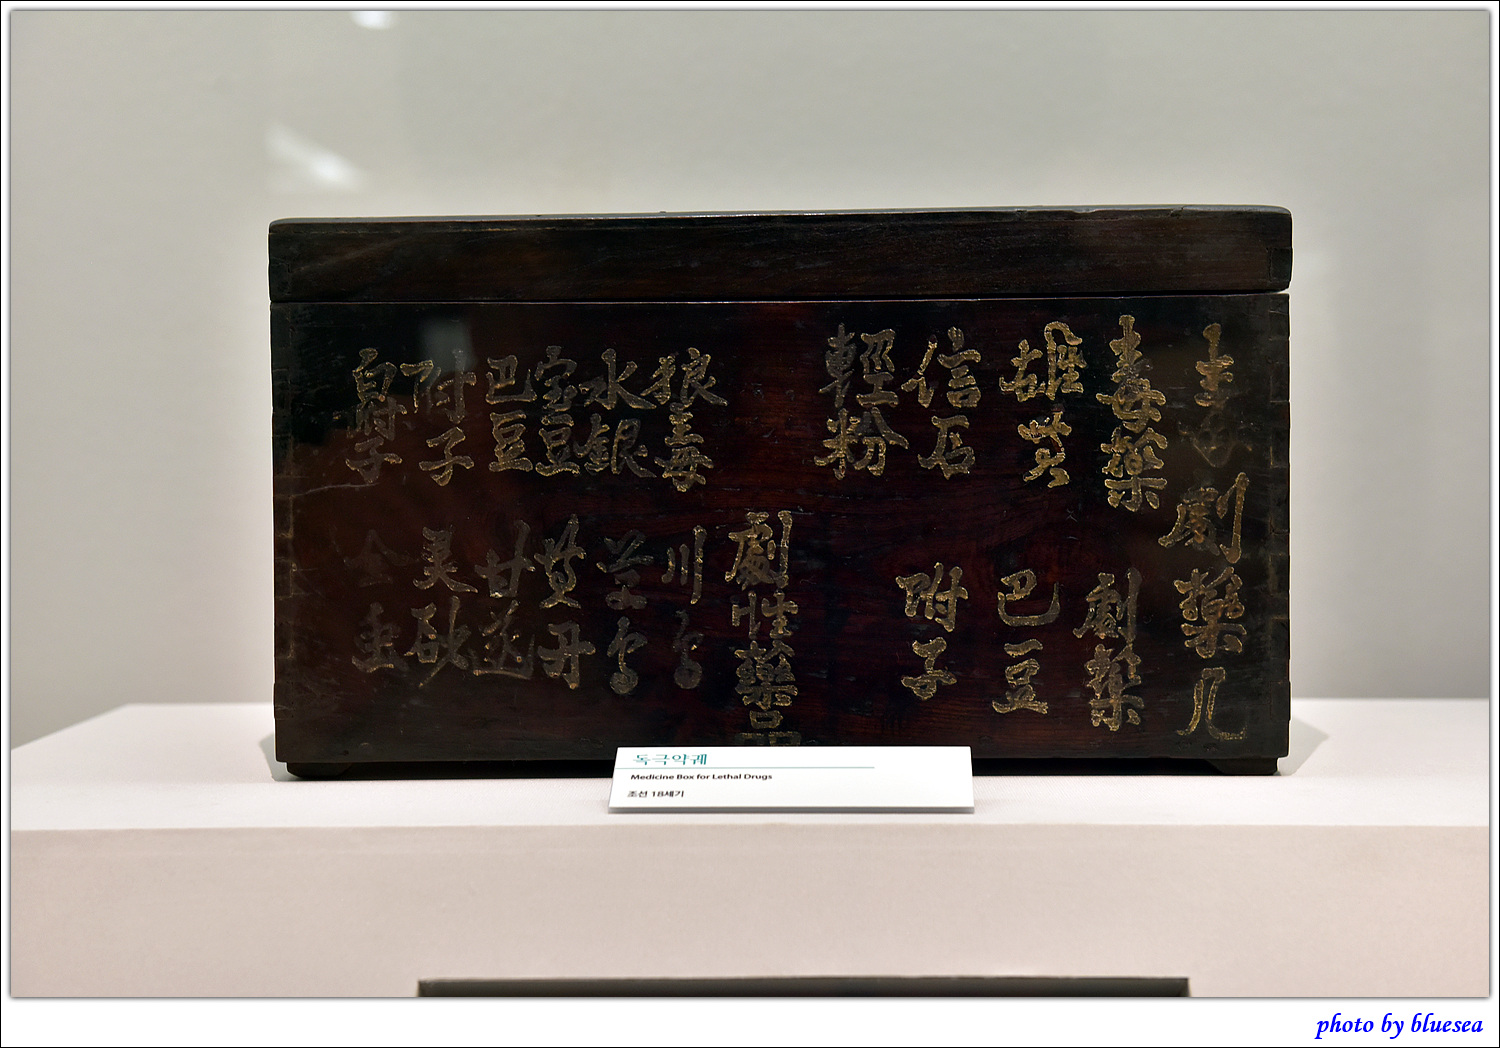 毒劇藥几
毒藥
劇藥
雄黃
巴豆
信石
附子
輕粉
劇性藥品
狼毒
川烏
水銀
草烏
黃丹
巴豆
甘遂
附子
독극약궤
Medicine Box for Lethal Drugs
조선 18세기
photo by bluesea